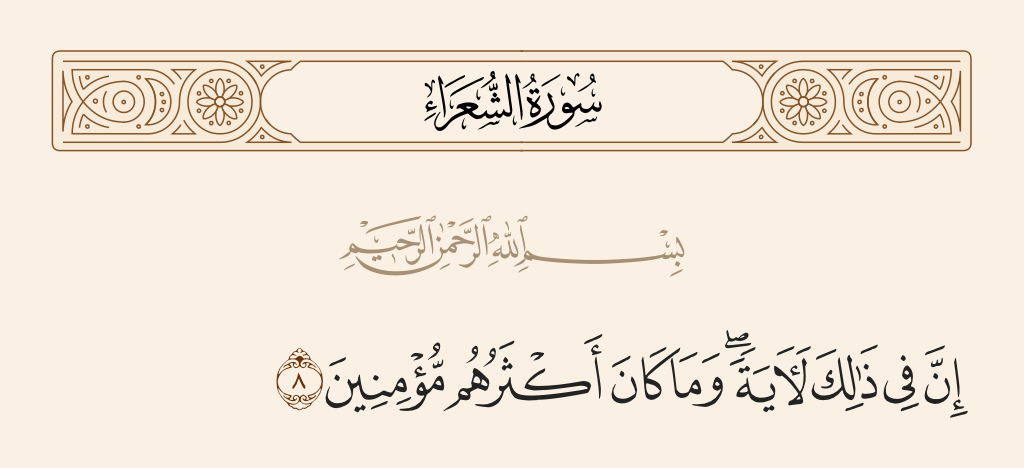 سُورَةُ الشُّعَرَاءِ
بِسْمِ ٱللَّهِ ٱلرَّحْمَٰنِ ٱلرَّحِيمِ
إِنَّ فِى ذَٰلِكَ لَـَٔايَةً ۖ وَمَا كَانَ أَكْثَرُهُم مُّؤْمِنِينَ ٨